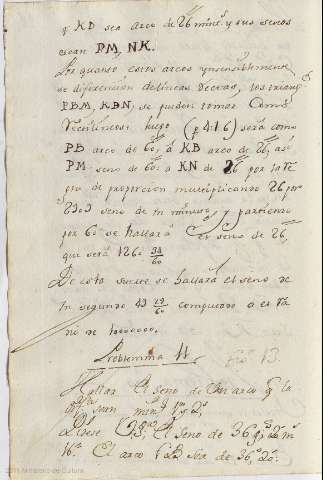 y KD sea arco de 26 minˢ. y sus senos
sean PM, NK.
Por quanto estos arcos ynsensiblemente
se diferencian de lineas rectas, los triangˢ
PBM, KBN, se pueden tomar Como
Rectilineos: luego (p 4 . l 6) será como
PB arco de 60, á KB arco de 26, asi
PM seno de 60, á KN de 26 por la re
gla de proporcion multiplicando 26 por
2909 seno de un minuto, y partiendo
por 60 se hallará el seno de 26,
que será 1260 34/60
De esta suerte se hallará el seno de
un segundo 48 29/60 comparado a el ra
dio de 10000000.
Problemma 11.
Hallar El seno de Un arco q̃ la
minˢ y
Dese El seno de 36 gˢ 20 m
El arco sea de 36, 20.
2011 Ministerio de Cultura